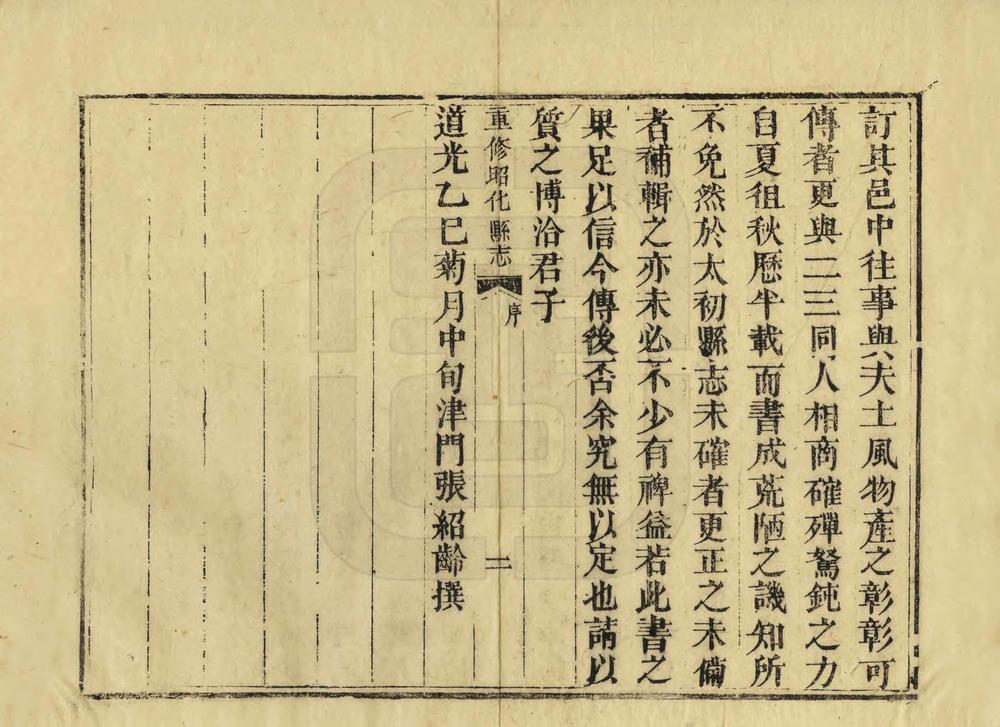 訂其邑中往事與夫土風物產之彰彰可
傳者更與二三同人相商確殫駑鈍之力
自夏徂秋歷半載而書成荒陋之譏知所
不免然於太初縣志未確者更正之未備
者補輯之亦未必不少有裨益若此書之
果足以信今傳後否余究無以定也請以
質之博洽君子
重修昭化縣志
序
二
道光乙巳菊月中旬津門張紹齡撰